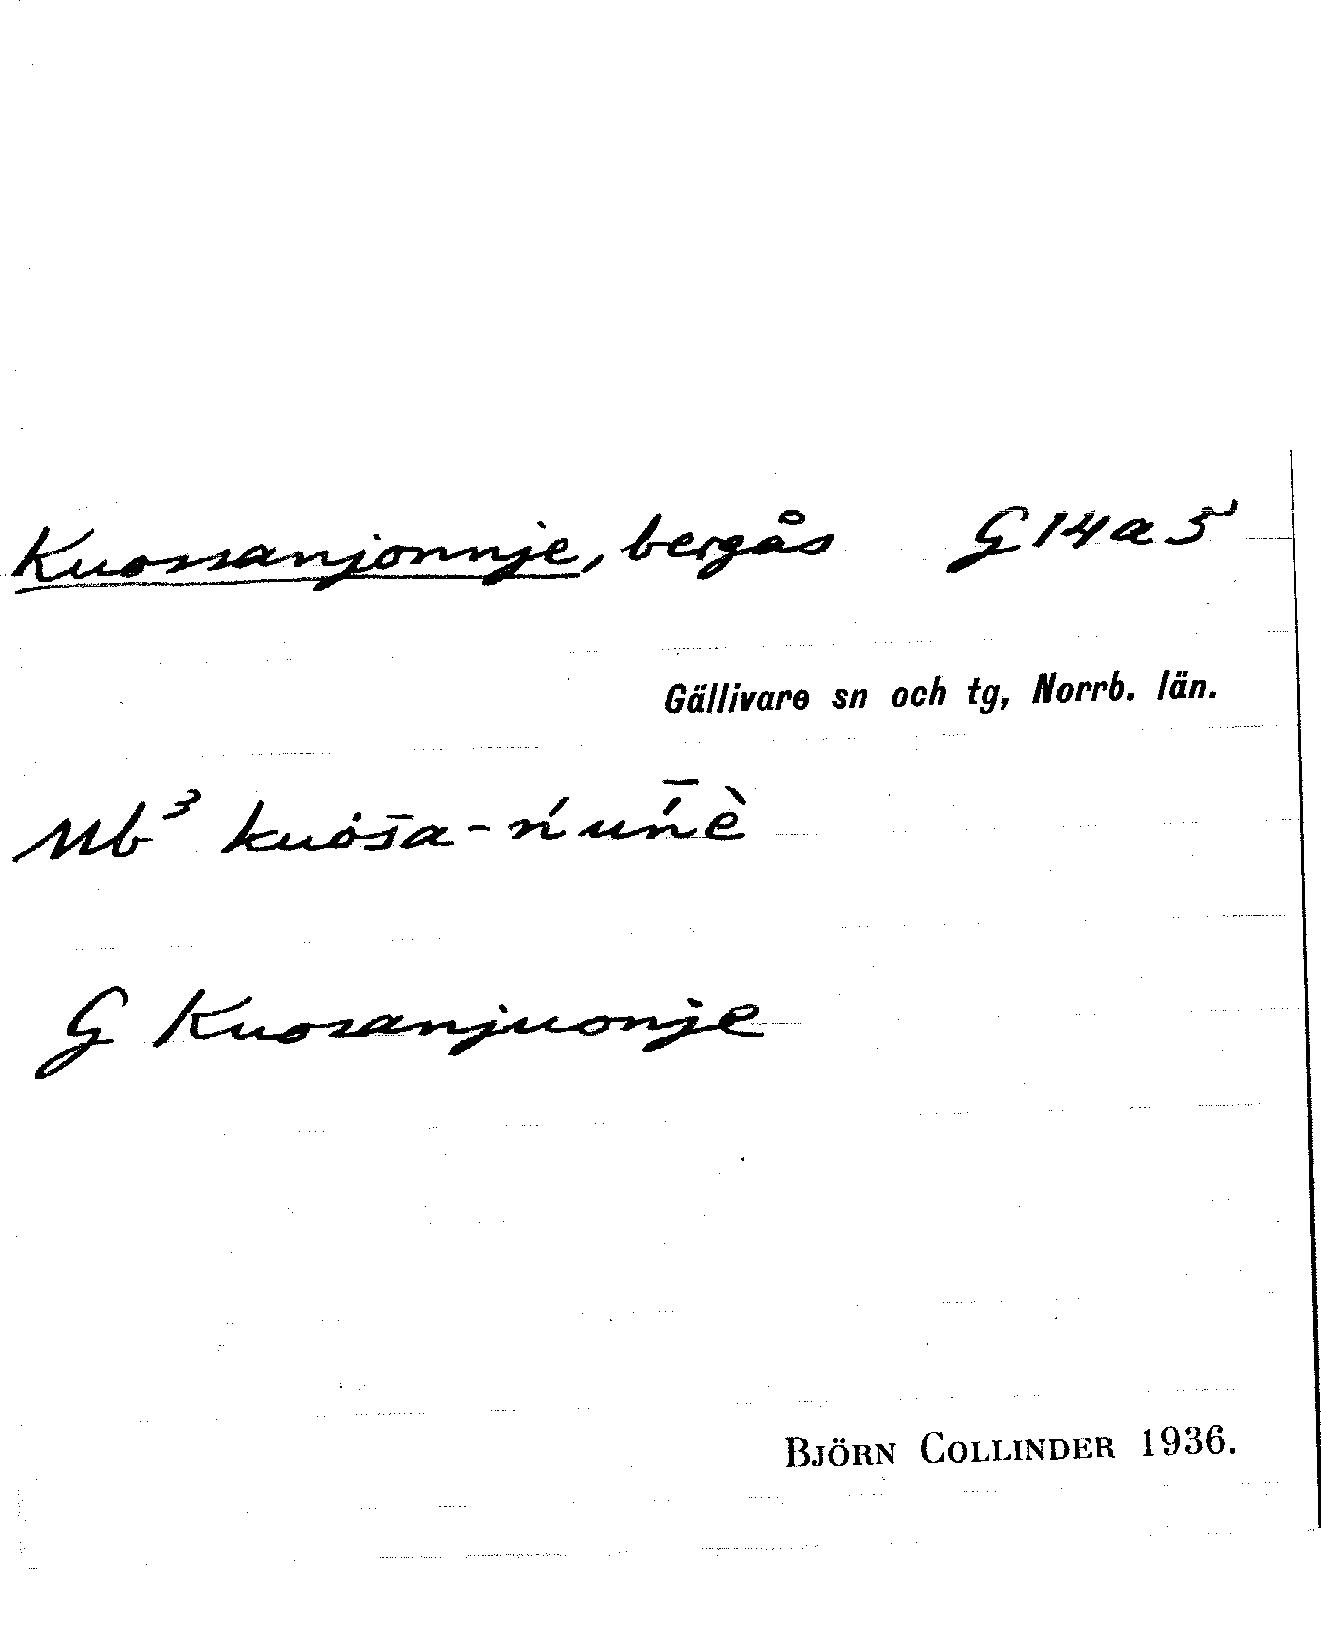 Kuossanjonnje, bergås G14a5
Gällivare sn och tg, Norrb. län.
Mb³ kuȯs̄a-ńuń̄è
G Kuosanjuonje
BJÖRN COLLINDER 1936.